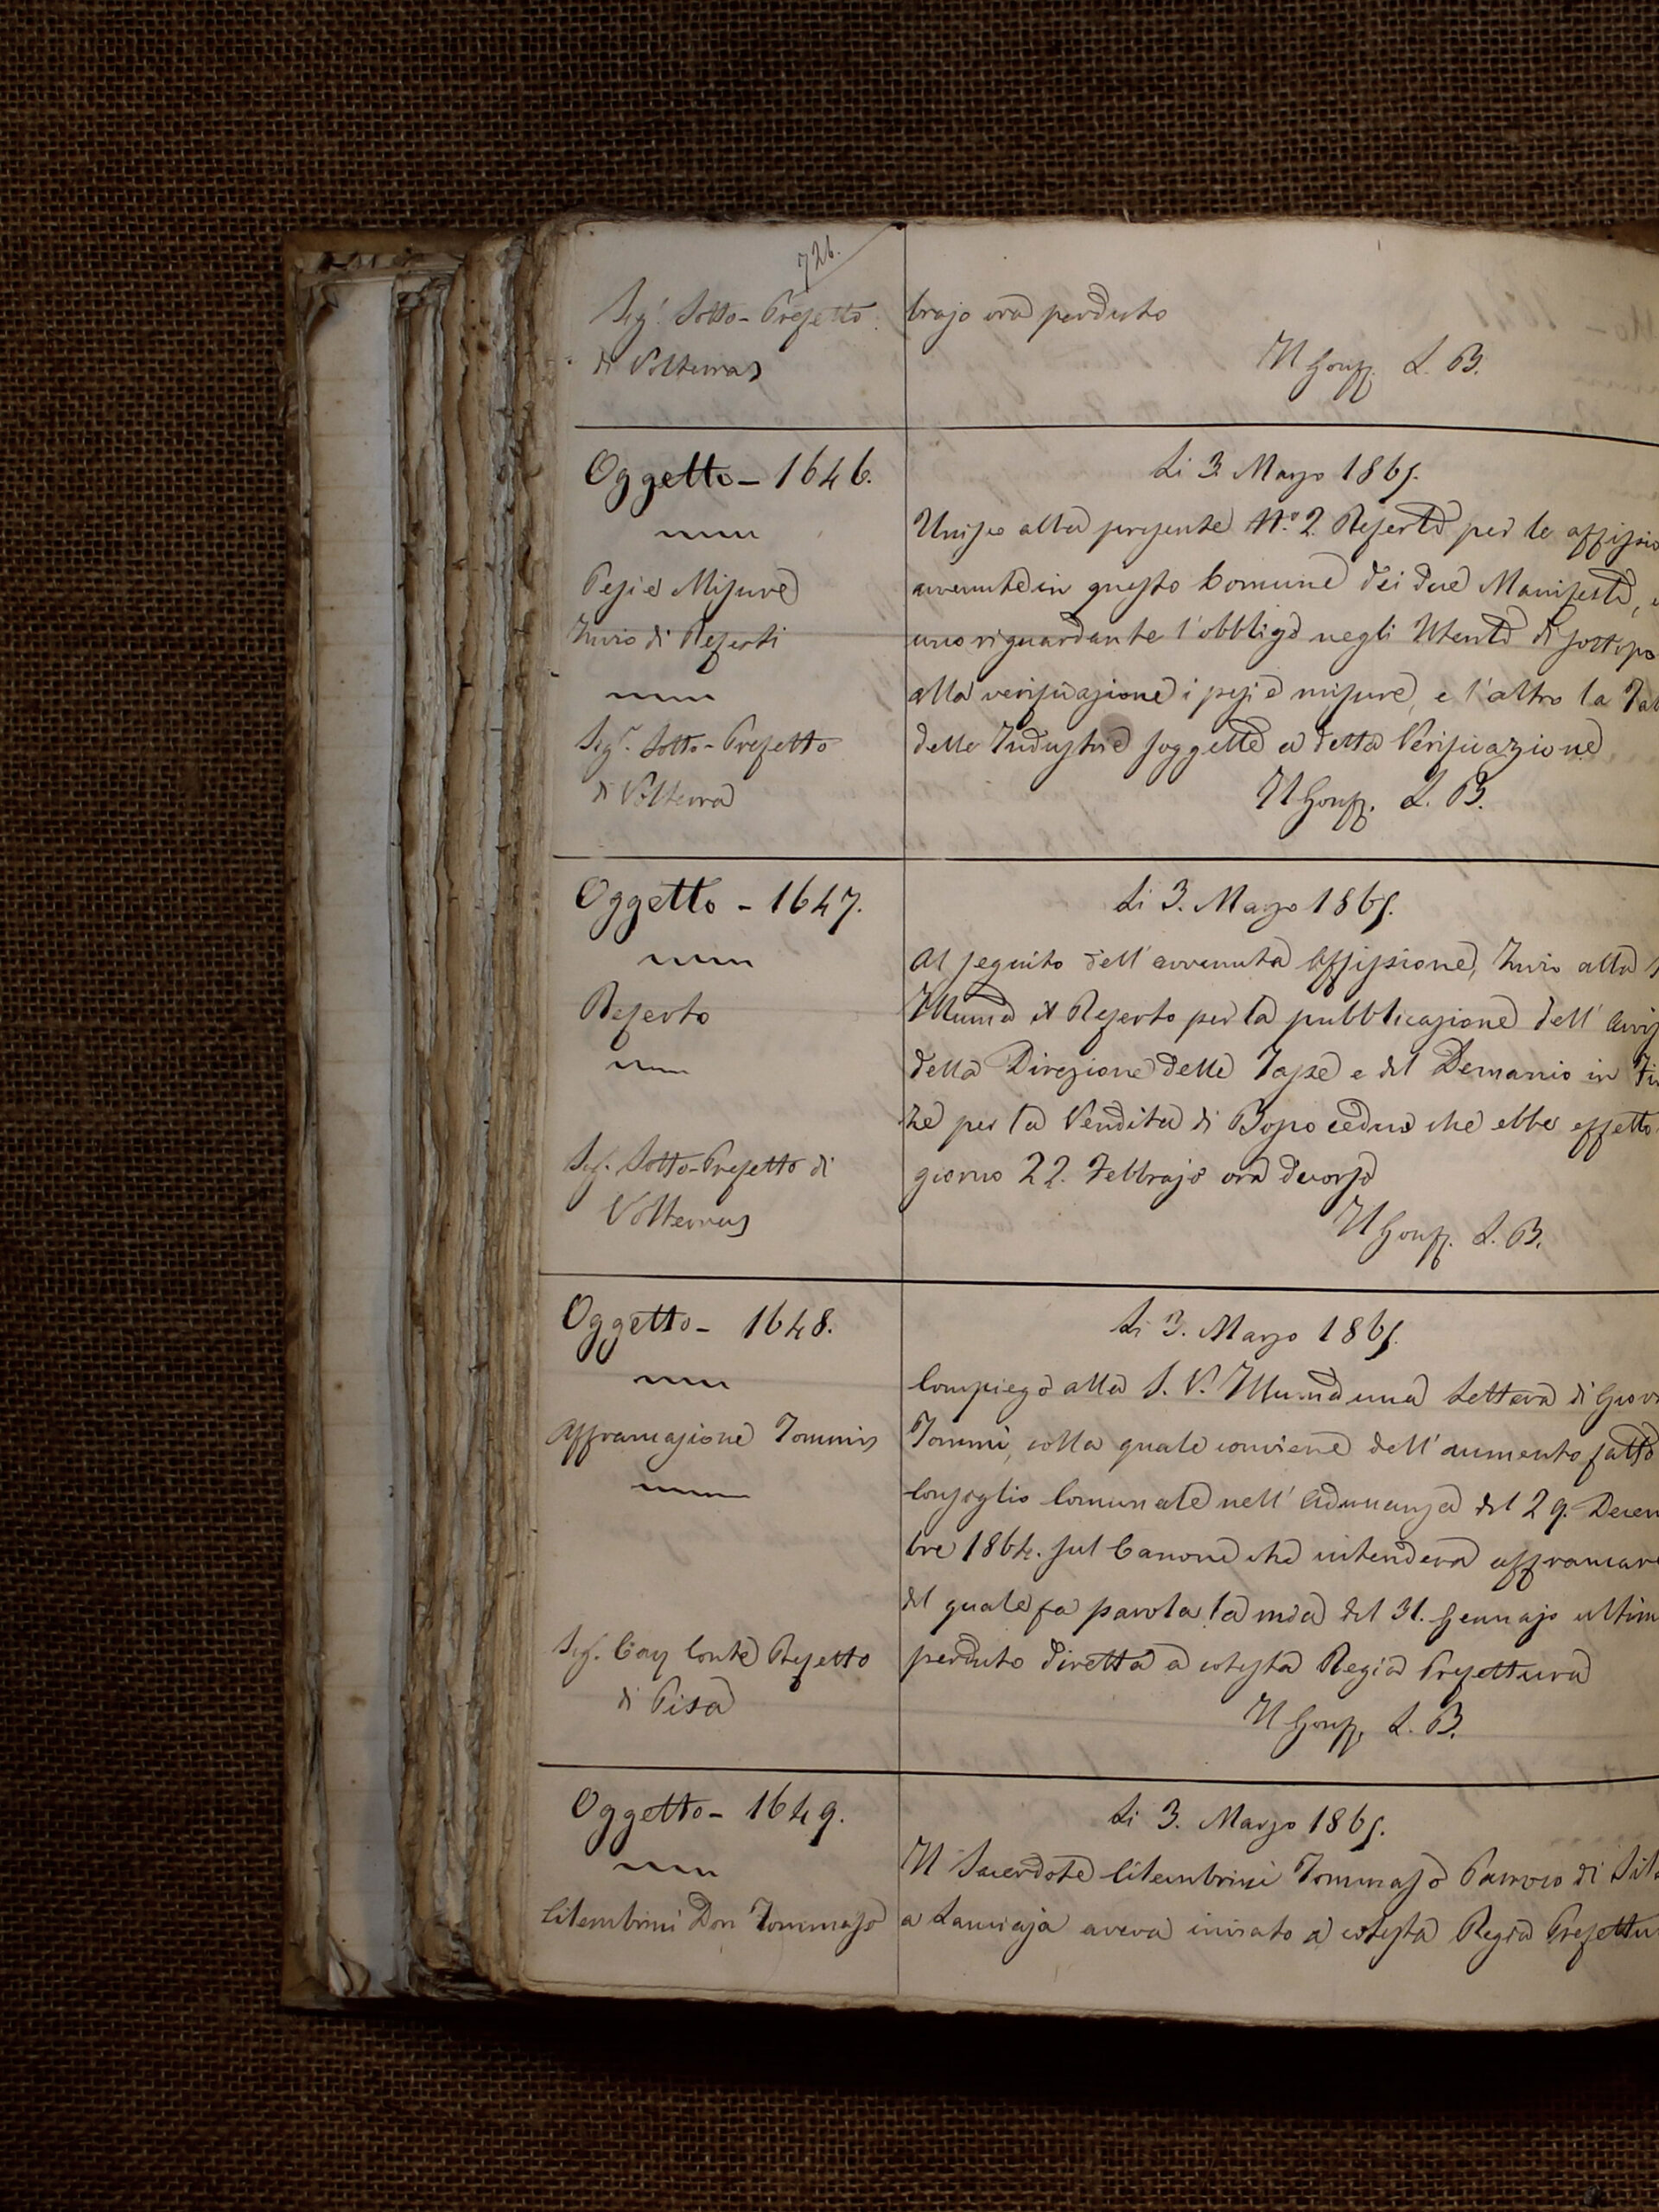 726.
Sig.r Sotto-Prefetto
di Volterra
brajo ora perduto
Il Gonf. L. B.
Oggetto - 1646.
Pesi e Misure
Invio di Referti
Sig.r Sotto-Prefetto
di Volterra
Li 3 Marzo 1865.
Unisco alla presente N.° 2. Referti per le affissio
avvenute in questo Comune dei due Manifesti,
uno riguardante l'obbligo negli Utenti di sottopo
alla verificazione i pesi e misure, e l'altro la Tab
delle Industrie soggette a detta Verificazione
Il Gonf. L. B.
Oggetto - 1647.
Referto
Sig. Sotto-Prefetto di
Volterra
Li 3. Marzo 1865.
Al seguito dell'avvenuta Affissione, Invio alla
Illuma il Referto per la pubblicazione dell'Avvis
della Direzione delle Tasse e del Demanio in Fi
ze per la Vendita di Bosco ceduo che ebbe effetto
giorno 22. Febbrajo ora decorso
Il Gonf. L. B.
Oggetto - 1648.
Affrancazione Tommi
Sig. Cav Conte Prefetto
di Pisa
Li 3. Marzo 1865.
Compiego alla S. V. Illuma una Lettera di Giov
Tommi, colla quale conviene dell'aumento fatto
Consiglio Comunale nell'Adunanza del 29. Decem
bre 1864. sul Canone che intendeva affrancare
del quale fa parola la mia del 31. Gennajo ultim
perduto diretta a cotesta Regia Prefettura
Il Gonf. L. B.
Oggetto - 1649.
Citembrini Don Tommaso
Li 3. Marzo 1865.
Il Sacerdote Citembrini Tommaso Parroco di
a Lanciaja aveva inviato a cotesta Regia Prefettu